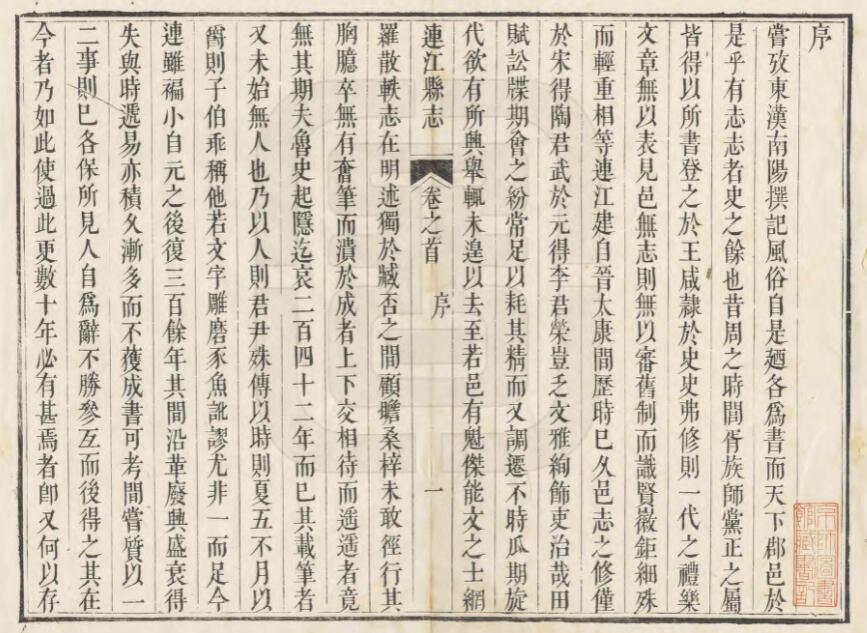 序
嘗攷東漢南陽撰記風俗自是廼各爲書而天下郡邑於
是乎有志志者史之餘也昔周之時閭胥族師黨正之屬
皆得以所書登之於王咸隸於史史弗修則一代之禮樂
文章無以表見邑無志則無以審舊制而識賢嶶鉅細殊
而輕重相等連江建自晉太康間歷時已久邑志之修僅
於宋得陶君武於元得李君榮豈乏文雅絢飾吏治哉田
賦訟牒期會之紛常足以耗其精而又調遷不時瓜期旋
代欲有所興舉輒未遑以去至若邑有魁傑能文之士網
連江縣志 卷之首 序 一
羅散軼志在明述獨於臧否之間顧瞻桑梓未敢徑行其
胸臆卒無有奮筆而潰於成者上下交相待而遥遥者竟
無其期夫魯史起隱迄哀二百四十二年而已其載筆者
又未始無人也乃以人則君尹殊傳以時則夏五不月以
爵則子伯乖稱他若文字雕磨豕魚訛謬尤非一而足今
連雖褊小自元之後復三百餘年其間沿革廢興盛衰得
失與時遞易亦積久漸多而不獲成書可考間嘗質以一
二事則已各保所見人自爲辭不勝參互而後得之其在
今者乃如此使過此更數十年必有甚焉者卽又何以存